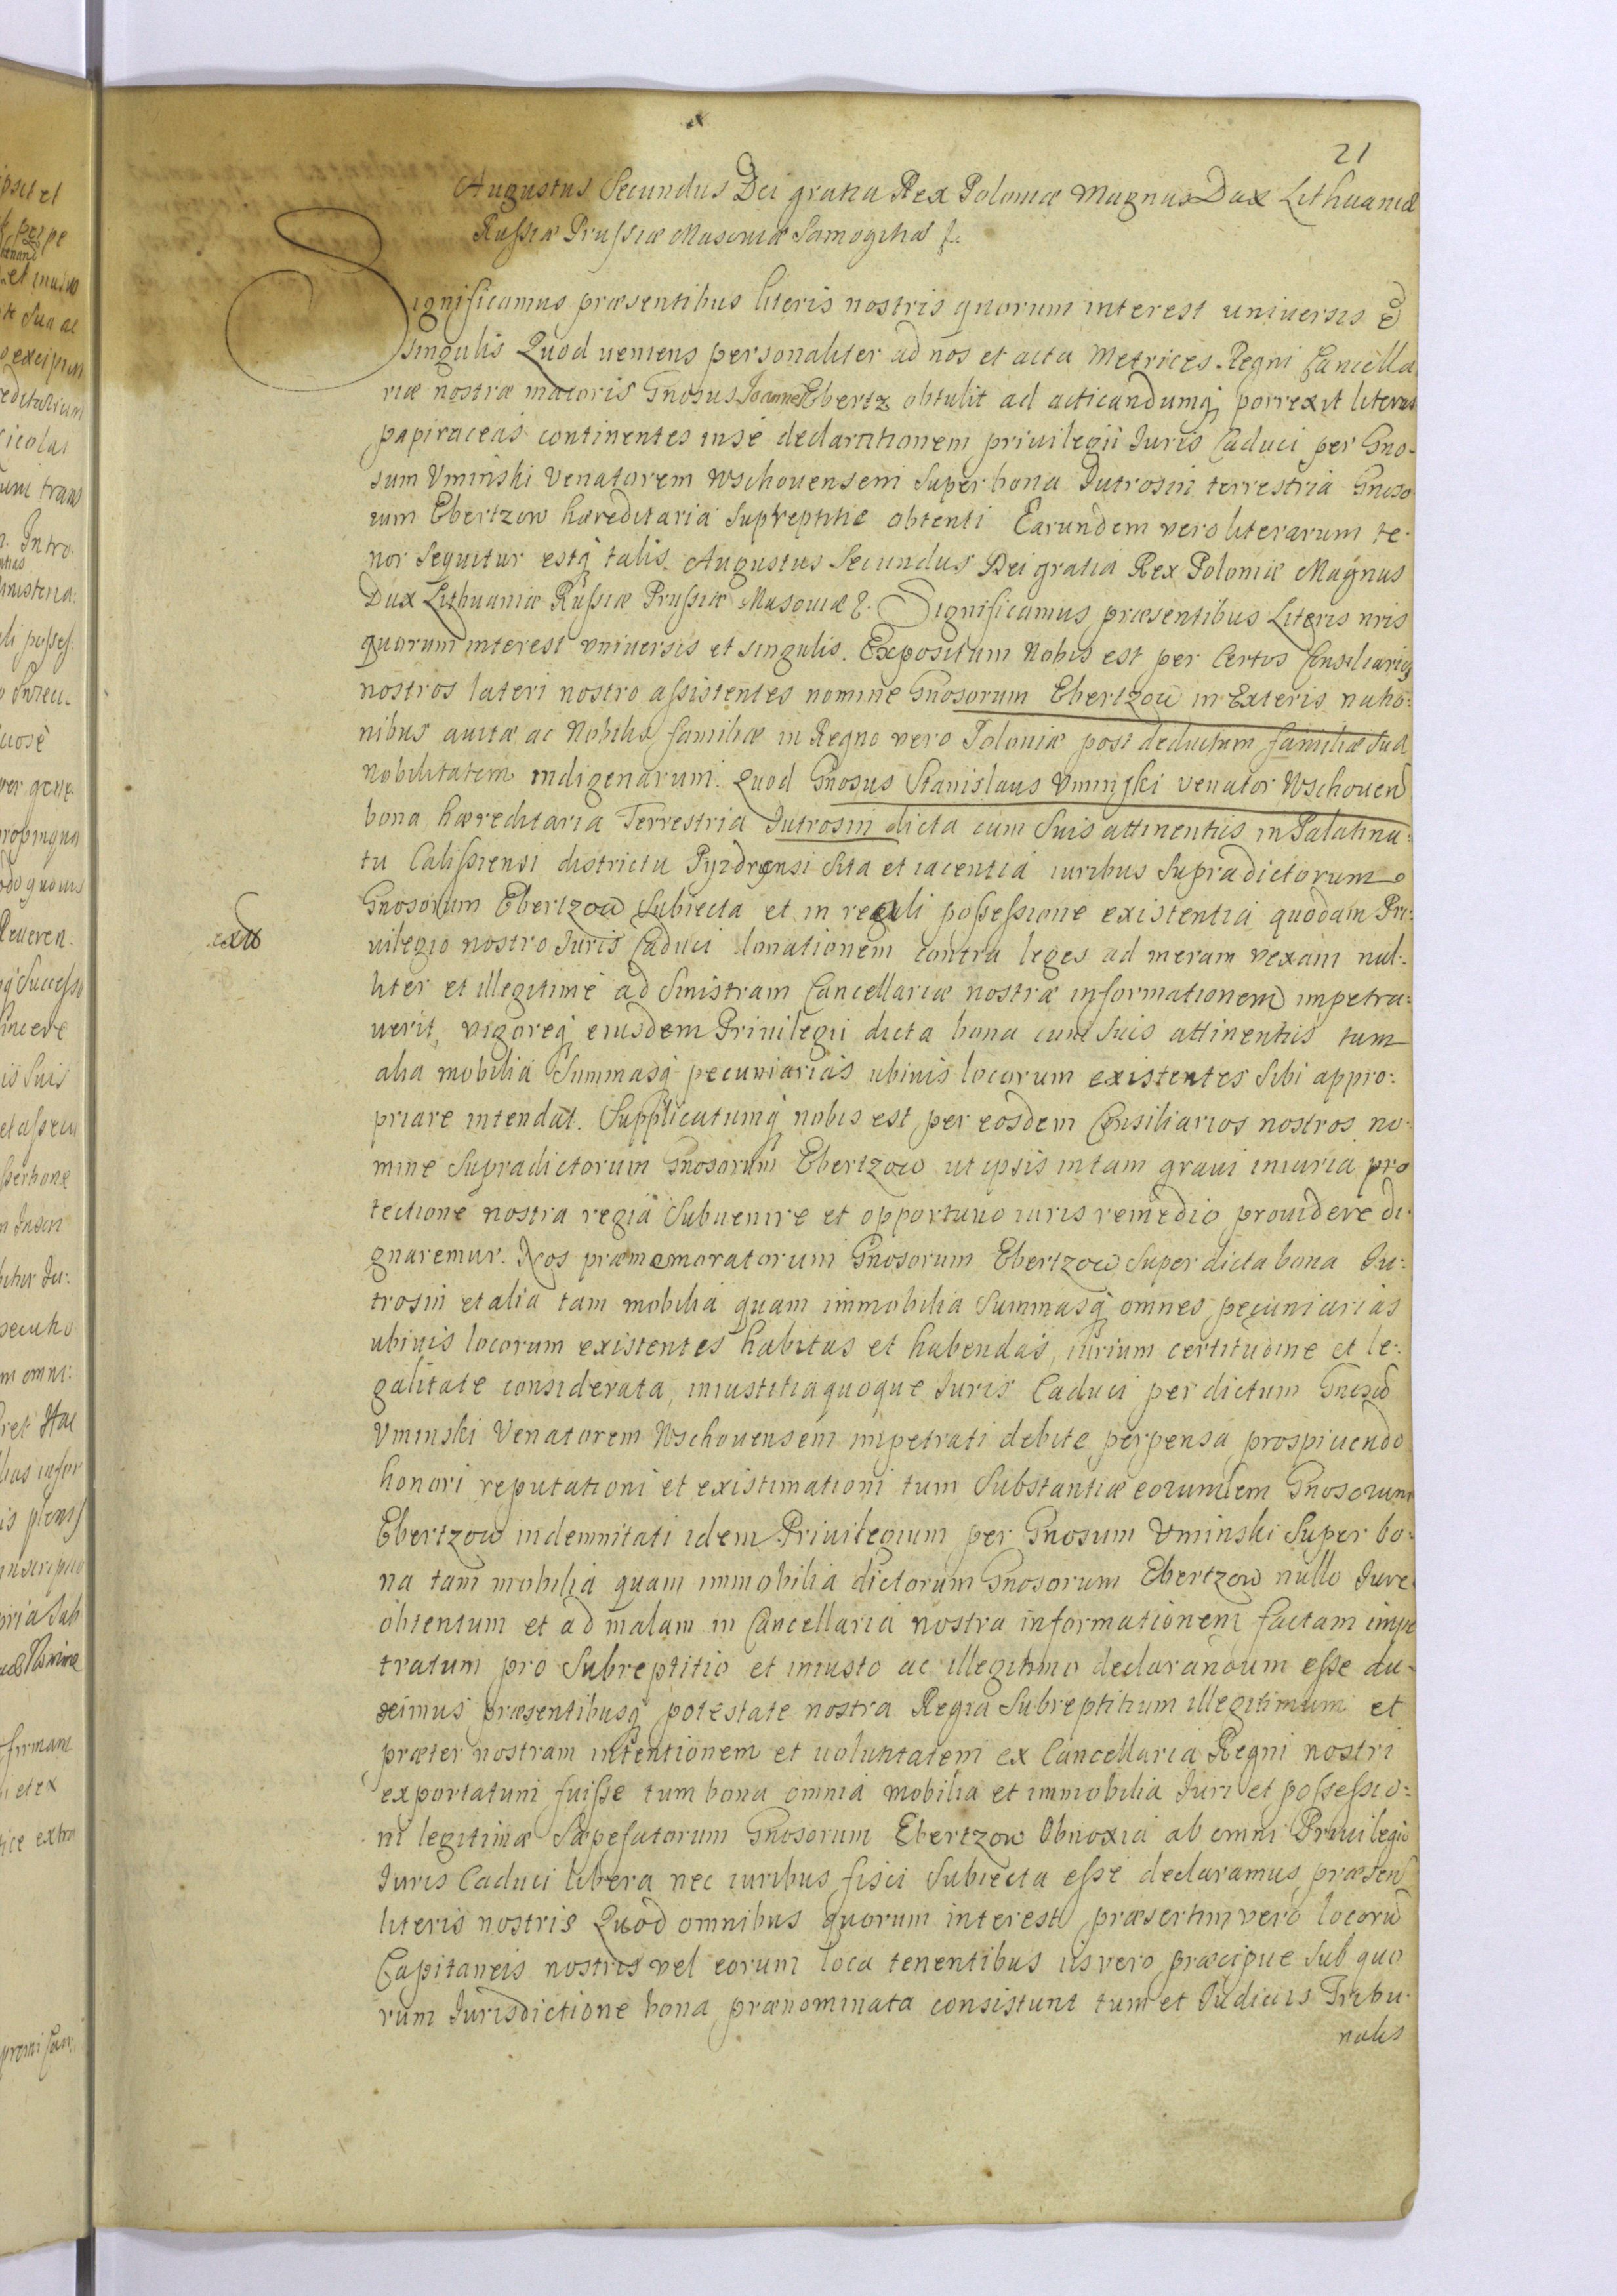 21
Augustus Secundus Dei gratia Rex Poloniæ Magnus Dux Lithuaniæ
Russiæ Prussiæ Masoviæ Samogitiæ &c.
Significamus præsentibus literis nostris quorum interest universis et
singulis Quod veniens personaliter ad nos et acta Metrices Regni Cancella
riæ nostræ maioris Gnosus Joannes Ebertz obtulit ad acticandumq porrexit literas
papiraceas continentes in se declarationem privilegii Juris Caduci per Gno-
sum Vminski Venatorem Wschouensem super bona Jutrosin terrestria Gnoso
rum Ebertzow hæreditaria supreptitie obtenti Earundem vero literarum te-
nor sequitur estq talis. Augustus Secundus Dei gratia Rex Poloniæ Magnus
Dux Lithuaniæ Russiæ Prussiæ Masoviæ &. Significamus præsentibus Literis nris
quorum interest vniversis et singulis. Expositum Nobis est per Certos Consiliarios
nostros lateri nostro assistentes nomine Gnosorum Ebertzow in Exteris natio:
nibus avitæ ac Nobilis familiæ in Regno vero Poloniæ post deductam familiæ suæ
Nobilitatem indigenarum. Quod Gnosus Stanislaus Vminski venator Wschouen
bona hæreditaria Terrestria Jutrosin dicta cum suis attinentiis in Palatina:
tu Calissiensi districtu Pyzdrensi sita et iacentia iuribus supradictorum
Gnosorum Ebertzow subiecta et in reali possessione existentia quodam Pri:
vilegio nostro Juris Caduci donationem contra leges ad meram vexam nul:
liter et illegitime ad sinistram Cancellariæ nostræ informationem impetra:
verit, vigoreq eiusdem Privilegii dicta bona cum suis attinentiis tum
alia mobilia summasq pecuniarias ubivis locorum existentes sibi appro:
priare intendat. Supplicatumq nobis est per eosdem Consiliarios nostros no:
mine supradictorum Gnosorum Ebertzow ut ipsis in tam gravi iniuria pro
tectione nostra regia subvenire et opportuno iuris remedio providere di:
gnaremur. Nos præmemoratorum Gnosorum Ebertzow super dicta bona Ju:
trosin et alia tam mobilia quam immobilia summasq omnes pecuniarias
ubivis locorum existentes habitas et habendas, iurium certitudine et le:
galitate considerata, iniustitia quoque Juris Caduci per dictum Gnosum
Vminski Venatorem Wschouensem impetrati debite perpensa prospiciendo
honori reputationi et existimationi tum substantiæ eorundem Gnosorum
Ebertzow indemnitati idem Privilegium per Gnosum Vminski super bo:
na tam mobilia quam immobilia dictorum Gnosorum Ebertzow nullo Jure
obtentum et ad malam in Cancellaria nostra informationem factam impe
tratum pro subreptitio et iniusto ac illegitimo declarandum esse du-
ximus præsentibusq potestate nostra Regia subreptitium illegitimum et
præter nostram intentionem et voluntatem ex Cancellaria Regni nostri
exportatum fuisse tum bona omnia mobilia et immobilia Juri et possessio:
ni legitimæ sæpefatorum Gnosorum Ebertzow Obnoxia ab omni Privilegio
Juris Caduci libera nec iuribus fisci subiecta esse declaramus præsen
literis nostris Quod omnibus quorum interest præsertim vero locorum
Capitaneis nostris vel eorum loca tenentibus iis vero præcipue sub quo
rum Jurisdictione bona prænominata consistunt tum et Judiciis Tribu-
nalis